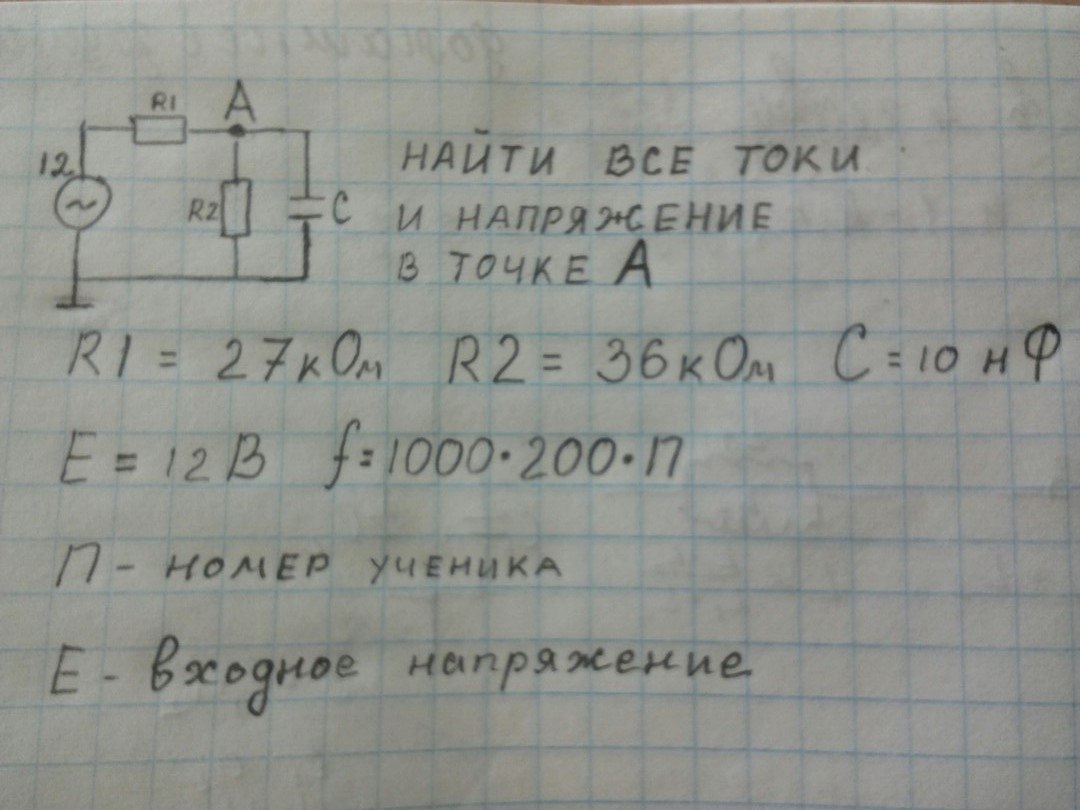 R1 A
12
R2 C
НАЙТИ ВСЕ ТОКИ
И НАПРЯЖЕНИЕ
В ТОЧКЕ А
R1 = 27 кОм R2 = 36 кОм C = 10 нФ
E = 12 В f = 1000 · 200 · П
П - НОМЕР УЧЕНИКА
Е - входное напряжение